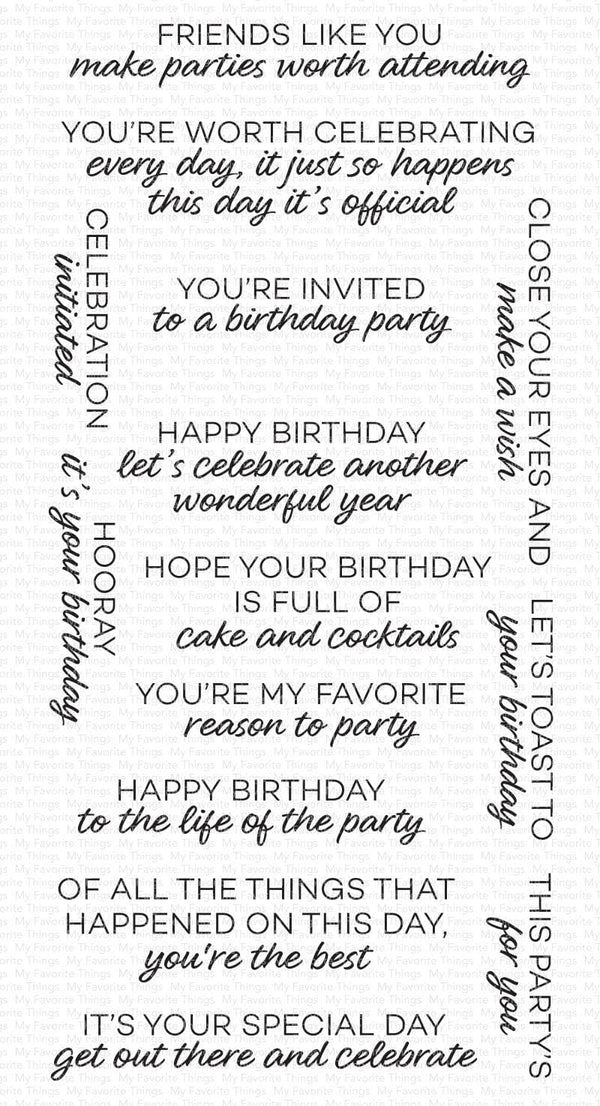 FRIENDS LIKE YOU
make parties worth attending
YOU'RE WORTH CELEBRATING
every day, it just so happens
this day it's official
CELEBRATION
initiated
CLOSE YOUR EYES AND
make a wish
YOU'RE INVITED
to a birthday party
HAPPY BIRTHDAY
let's celebrate another
wonderful year
HOORAY
it's your birthday
HOPE YOUR BIRTHDAY
IS FULL OF
cake and cocktails
LET'S TOAST TO
your birthday
YOU'RE MY FAVORITE
reason to party
HAPPY BIRTHDAY
to the life of the party
OF ALL THE THINGS THAT
HAPPENED ON THIS DAY,
you're the best
THIS PARTY'S
for you
IT'S YOUR SPECIAL DAY
get out there and celebrate
My Favorite Things